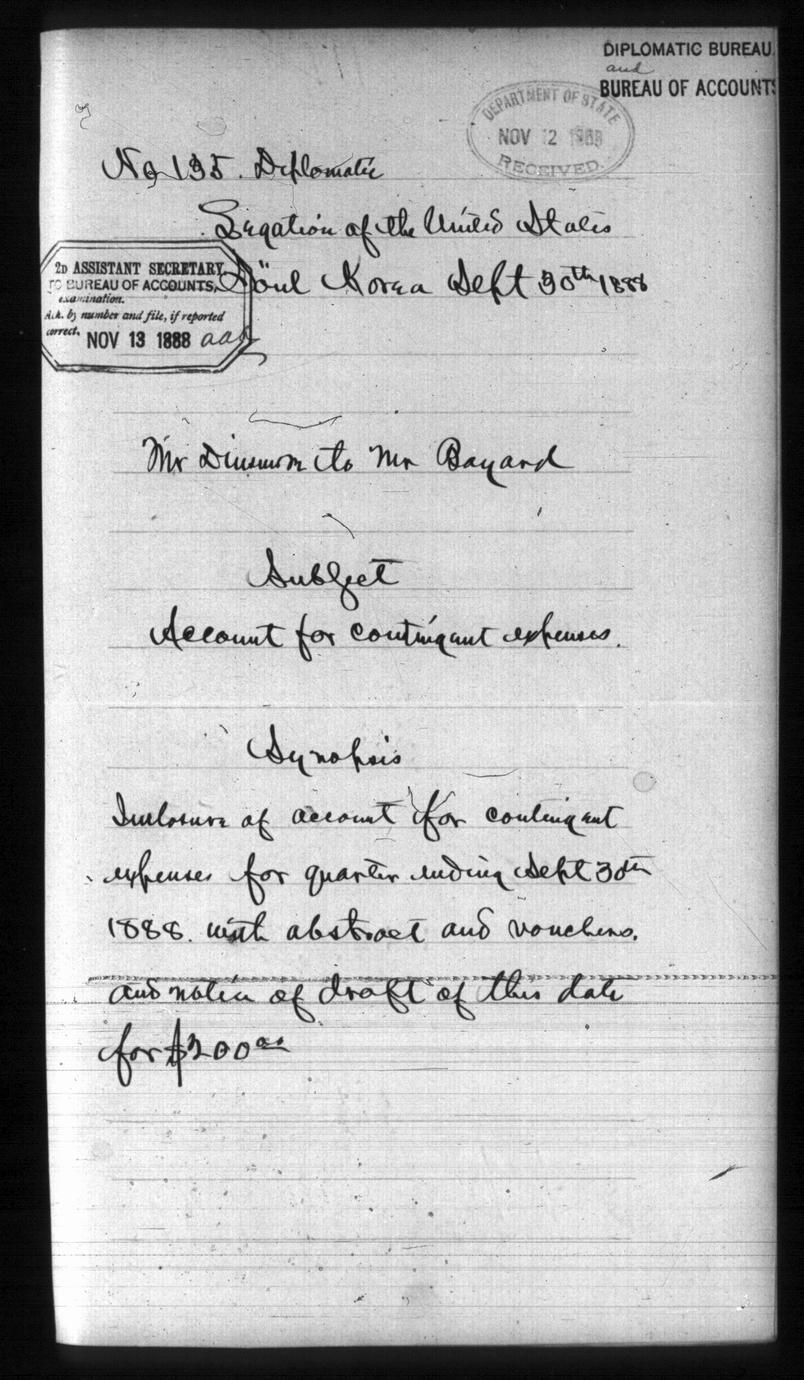 DIPLOMATIC BUREAU
and
BUREAU OF ACCOUNTS
DEPARTMENT OF STATE
NOV 12 1888
RECEIVED.
No 135. Diplomatic
Legation of the United States
Söul Korea Sept 30th 1888
2D ASSISTANT SECRETARY,
TO BUREAU OF ACCOUNTS,
examination.
Ack. by number and file, if reported
correct.
NOV 13 1888 aaa
Mr Dinsmore to Mr Bayard
Subject
Account for contingant expenses.
Synopsis
Inclosure of account for contingant
expenses for quarter ending Sept 30th
1888. with abstract and vouchers.
and notice of draft of this date
for $200